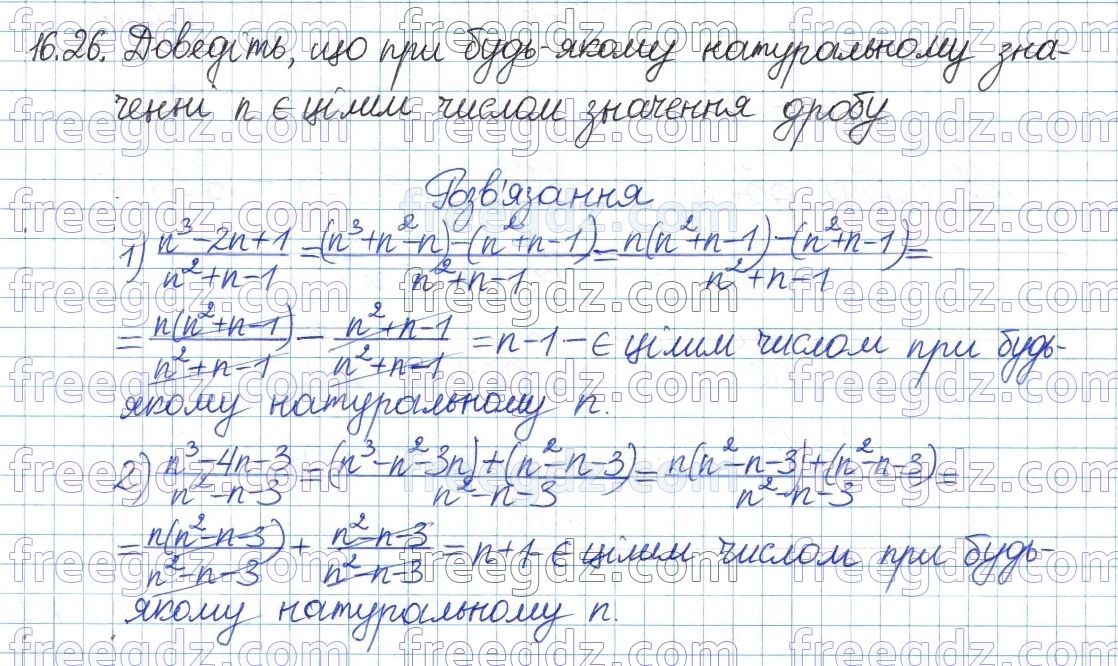 16.26. Доведіть, що при будь-якому натуральному зна-
ченні n є цілим числом значення дробу
Розв'язання
1) (n³-2n+1)/(n²+n-1) = ((n³+n²-n)-(n²+n-1))/(n²+n-1) = (n(n²+n-1)-(n²+n-1))/(n²+n-1) =
= n(n²+n-1)/(n²+n-1) - (n²+n-1)/(n²+n-1) = n-1 - є цілим числом при будь-
якому натуральному n.
2) (n³-4n-3)/(n²-n-3) = ((n³-n²-3n)+(n²-n-3))/(n²-n-3) = (n(n²-n-3)+(n²-n-3))/(n²-n-3) =
= n(n²-n-3)/(n²-n-3) + (n²-n-3)/(n²-n-3) = n+1 - є цілим числом при будь-
якому натуральному n.
freegdz.com